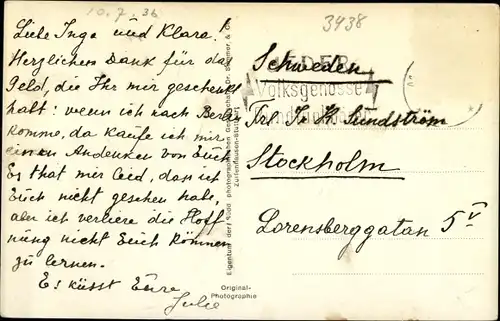 10.7.36
3438
Liebe Inge und Klara!
Herzlichen Dank für das
Geld, die Ihr mir geschenkt
habt: wenn ich nach Berlin
komme, da kaufe ich mir
einen Andenken von Euch
Es that mir leid, dass ich
Euch nicht gesehen habe,
aber ich verliere die Hoff
nung nicht Euch kömmen
zu lernen.
Es küsst Eure
Julie
Volksgenosse
Schweden
Frl. I. K. Sundström
Stockholm
Lorensberggatan 5 V
Eigentum der photographischen Gesellschaft Dr. &
Zuffenhausen-
Original-
Photographie